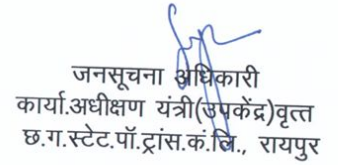 जनसूचना अधिकारी
कार्या.अधीक्षण यंत्री(उपकेंद्र)वृत्त
छ.ग.स्टेट.पॉ.ट्रांस.कं.लि., रायपुर